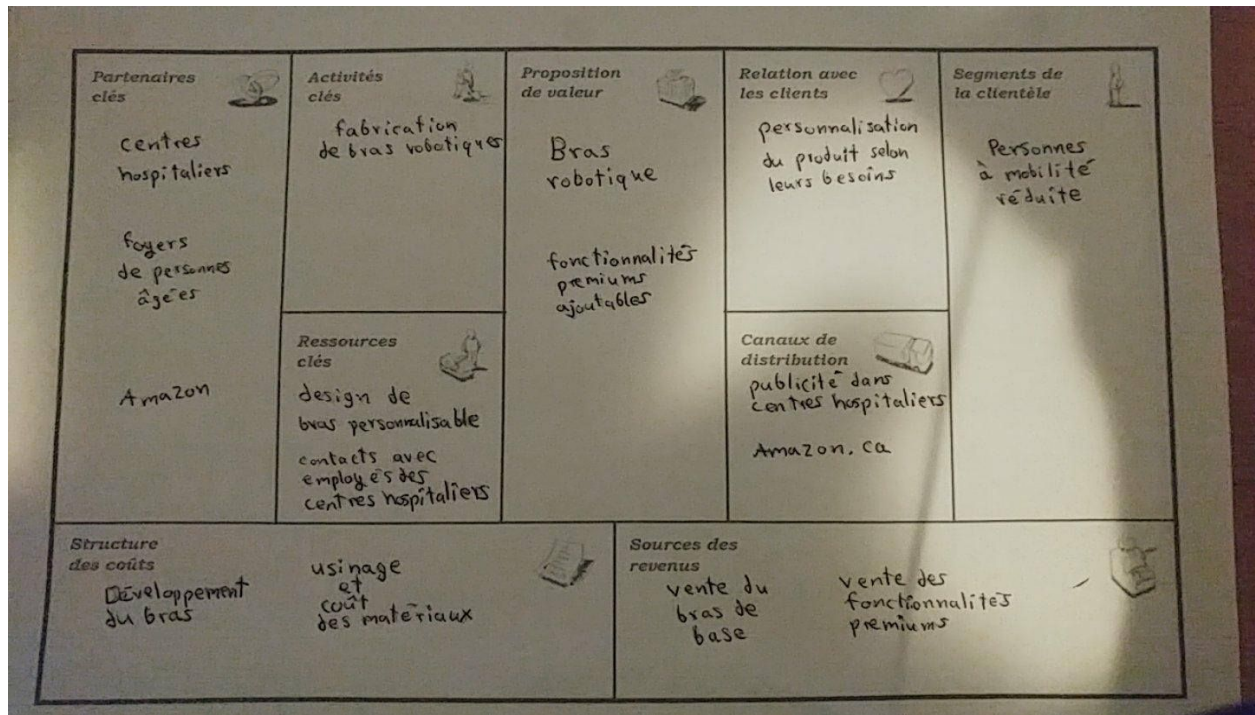 Partenaires
clés
centres
hospitaliers
foyers
de personnes
âgées
Amazon
Activités
clés
fabrication
de bras robotiques
Ressources
clés
design de
bras personnalisable
contacts avec
employés des
centres hospitaliers
Proposition
de valeur
Bras
robotique
fonctionnalités
premiums
ajoutables
Relation avec
les clients
personnalisation
du produit selon
leurs besoins
Canaux de
distribution
publicité dans
centres hospitaliers
Amazon.ca
Segments de
la clientèle
Personnes
à mobilité
réduite
Structure
des coûts
Développement
du bras
usinage
et
coût
des matériaux
Sources des
revenus
vente du
bras de
base
vente des
fonctionnalités
premiums